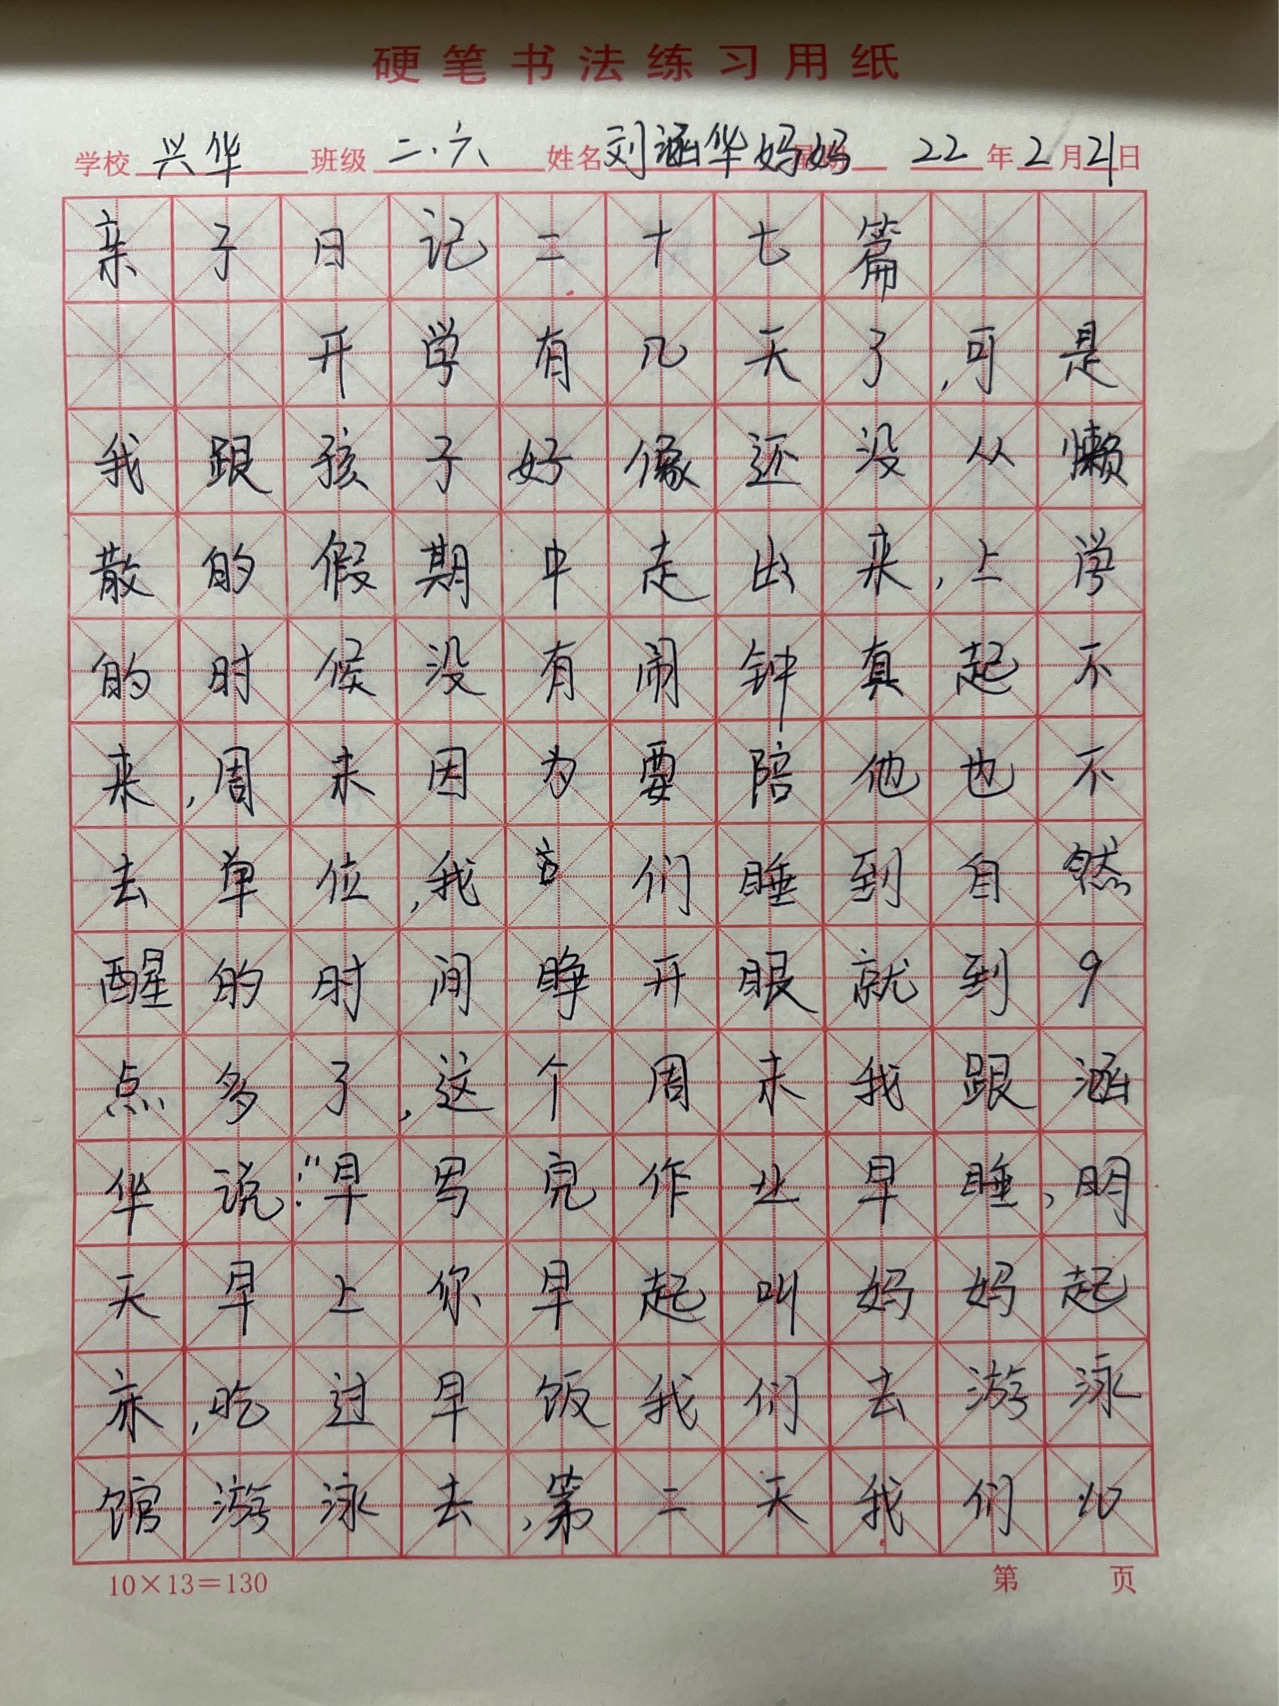 硬笔书法练习用纸
学校 兴华 班级 二.六 姓名 刘涵华妈妈 22 年 2 月 21 日
亲子日记二十七篇
开学有几天了,可是
我跟孩子好像还没从懒
散的假期中走出来,上学
的时候没有闹钟真起不
来,周末因为要陪他也不
去单位,我们睡到自然
醒的时间睁开眼就到9
点多了,这个周末我跟涵
华说:"早写完作业早睡,明
天早上你早起叫妈妈起
床,吃过早饭我们去游泳
馆游泳去,第二天我们
10×13=130 第 页